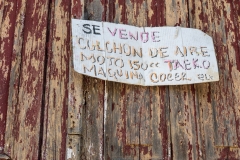 SE VENDE
COLCHON DE AIRE
MOTO 150cc TAEKO
MAQUINA COCER